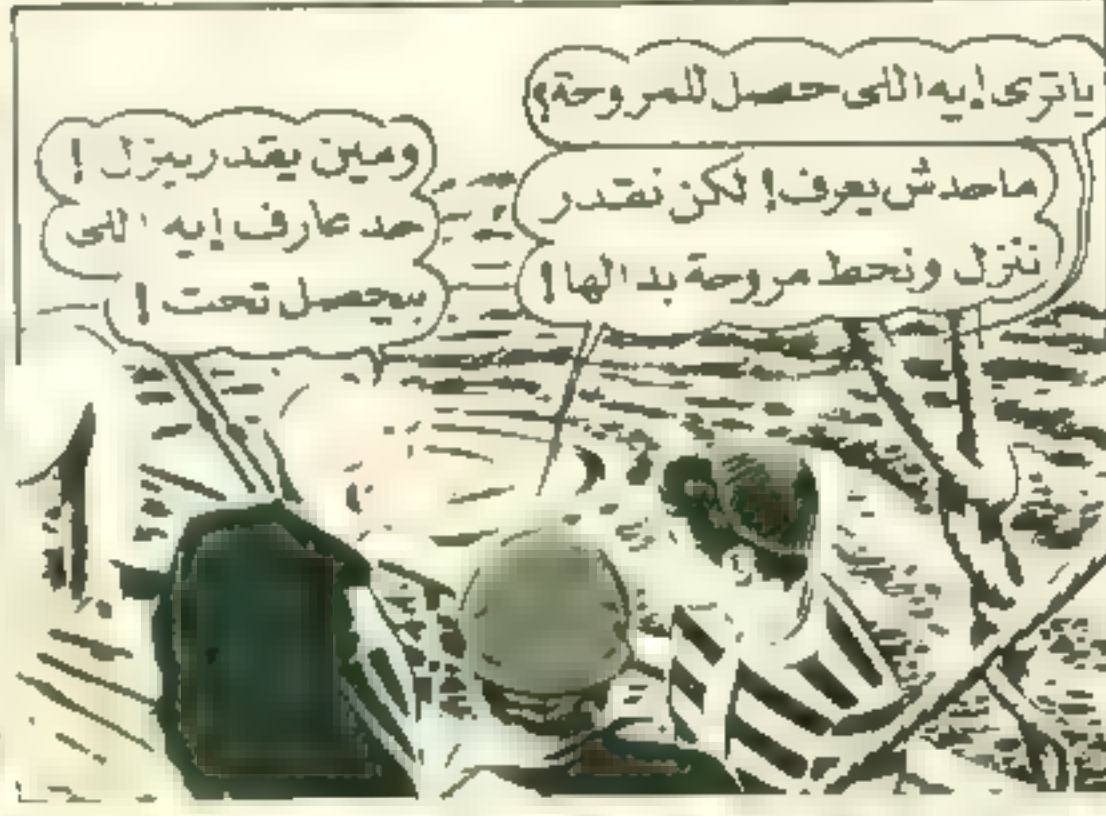 ياترى إيه اللى حصل للمروحة؟
ماحدش يعرف! لكن نقدر
ننزل ونحط مروحة بدالها!
ومين يقدر ينزل!
حد عارف إيه اللى
بيحصل تحت!